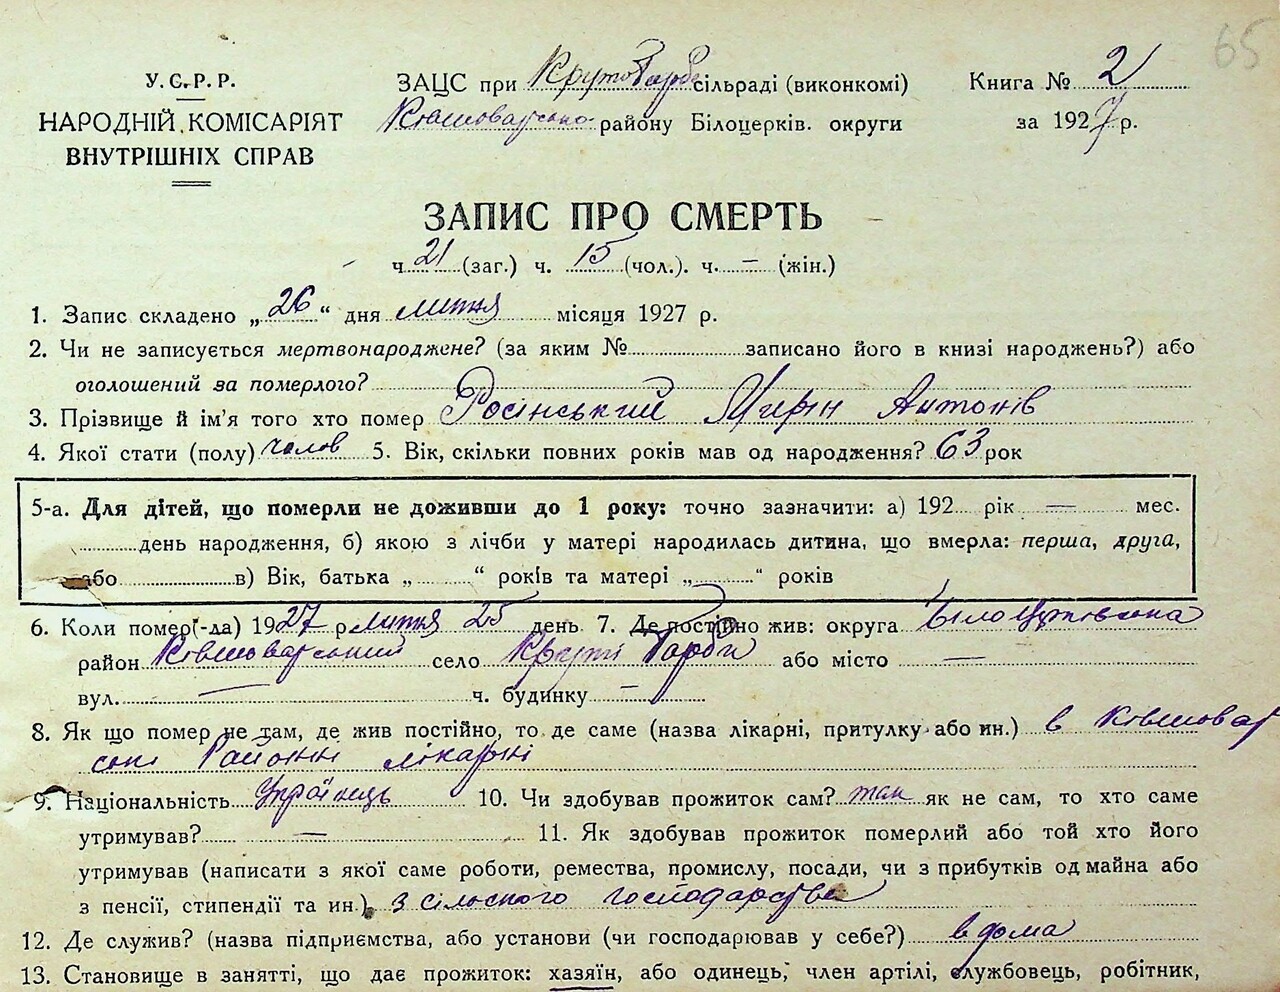 65
У.С.Р.Р.
НАРОДНІЙ КОМІСАРІЯТ
ВНУТРІШНІХ СПРАВ
ЗАЦС при КрутоГорбс сільраді (виконкомі)
Ковшоватсько- району Білоцерків. округи
Книга № 2
за 1927 р.
ЗАПИС ПРО СМЕРТЬ
ч 21 (заг.) ч. 15 (чол.). ч. — (жін.)
1. Запис складено „ 26 “ дня липня місяця 1927 р.
2. Чи не записується мертвонароджене? (за яким № записано його в книзі народжень?) або
оголошений за померлого?
3. Прізвище й ім'я того хто помер Росінський Антонів
4. Якої стати (полу) чолов 5. Вік, скільки повних років мав од народження? 63 рок
5-а. Для дітей, що померли не доживши до 1 року: точно зазначити: а) 192 рік — мес.
день народження, б) якою з лічби у матері народилась дитина, що вмерла: перша, друга,
або в) Вік, батька „ “ років та матері „ “ років
6. Коли помер(-ла) 1927 р липня 25 день 7. Де постійно жив: округа Білоцерківська
район Ковшоватський село Круті Горби або місто —
вул. — ч. будинку —
8. Як що помер не там, де жив постійно, то де саме (назва лікарні, притулку або ин.) в Ковшоват
ські Районні лікарні
9. Національність Українець 10. Чи здобував прожиток сам? так як не сам, то хто саме
утримував? — 11. Як здобував прожиток померлий або той хто його
утримував (написати з якої саме роботи, ремества, промислу, посади, чи з прибутків од майна або
з пенсії, стипендії та ин.) з сільского господарства
12. Де служив? (назва підприємства, або установи (чи господарював у себе?) в дома
13. Становище в занятті, що дає прожиток: хазяїн, або одинець, член артілі, службовець, робітник,